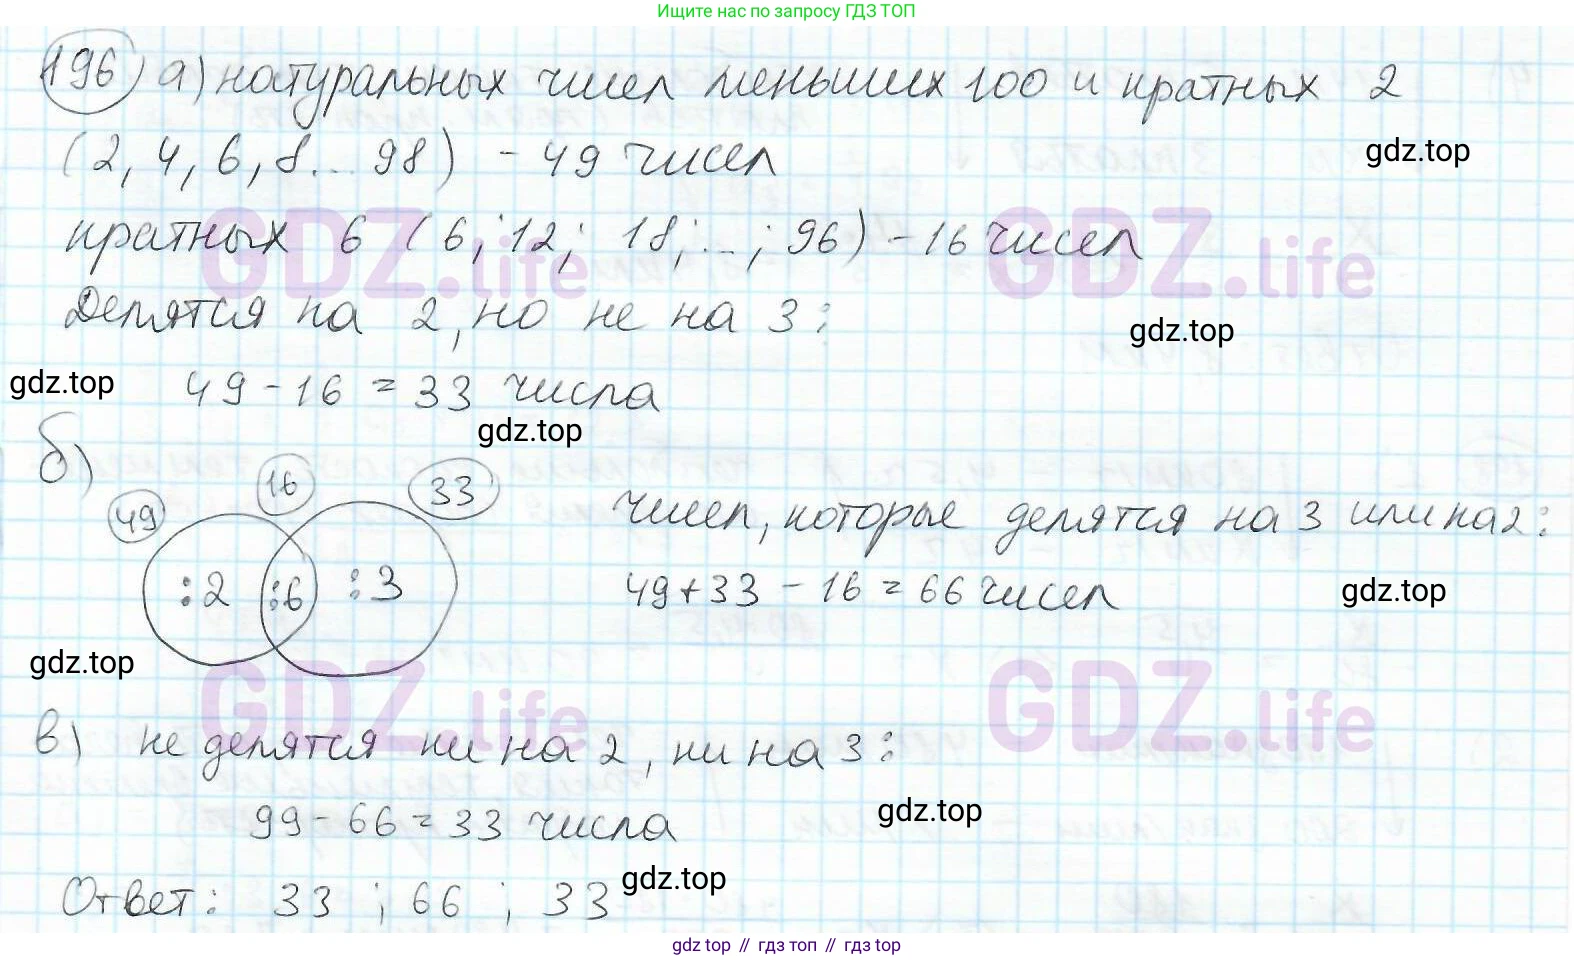 Ищите нас по запросу ГДЗ ТОП
196) а) натуральных чисел меньших 100 и кратных 2
(2, 4, 6, 8... 98) - 49 чисел
gdz.top
кратных 6 (6; 12; 18; ...; 96) - 16 чисел
GDZ.life GDZ.life
Делятся на 2, но не на 3:
gdz.top
gdz.top 49 - 16 = 33 числа
gdz.top
б)
49 16 33
чисел, которые делятся на 3 или на 2:
:2 :6 :3
49 + 33 - 16 = 66 чисел
gdz.top
gdz.top
GDZ.life GDZ.life
в) не делятся ни на 2, ни на 3:
gdz.top
99 - 66 = 33 числа
gdz.top
Ответ: 33 ; 66 ; 33
gdz top // гдз топ // гдз top